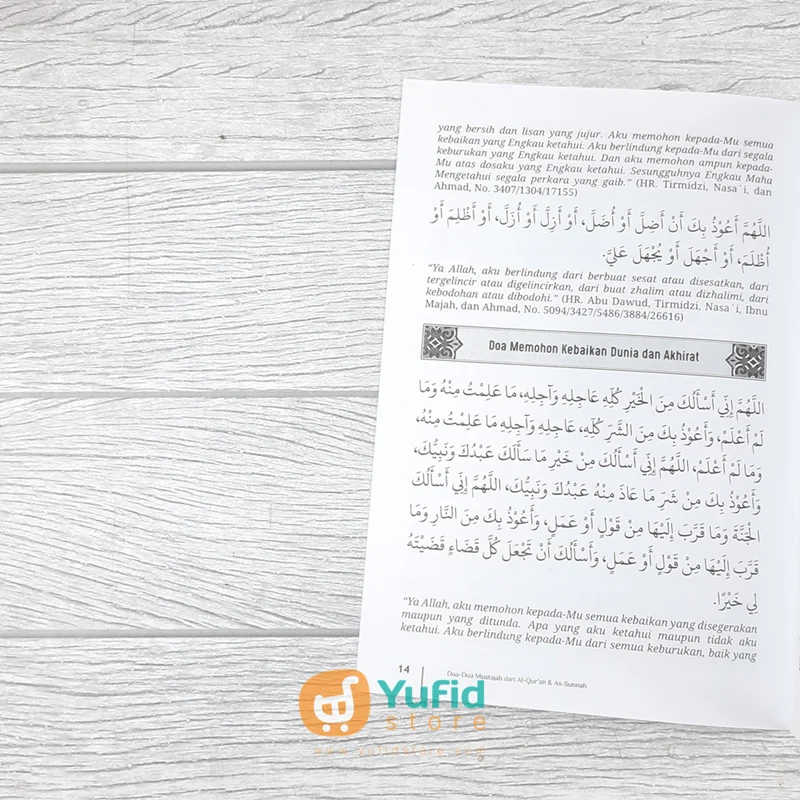 yang bersih dan lisan yang jujur. Aku memohon kepada-Mu semua
kebaikan yang Engkau ketahui. Aku berlindung kepada-Mu dari segala
keburukan yang Engkau ketahui. Dan aku memohon ampun kepada-
Mu atas dosaku yang Engkau ketahui. Sesungguhnya Engkau Maha
Mengetahui segala perkara yang gaib." (HR. Tirmidzi, Nasa`i, dan
Ahmad, No. 3407/1304/17155)
اللَّهُمَّ أَعُوْذُ بِكَ أَنْ أَضِلَّ أَوْ أُضَلَّ، أَوْ أَزِلَّ أَوْ أُزَلَّ، أَوْ أَظْلِمَ أَوْ
أُظْلَمَ، أَوْ أَجْهَلَ أَوْ يُجْهَلَ عَلَيَّ.
"Ya Allah, aku berlindung dari berbuat sesat atau disesatkan, dari
tergelincir atau digelincirkan, dari buat zhalim atau dizhalimi, dari
kebodohan atau dibodohi." (HR. Abu Dawud, Tirmidzi, Nasa`i, Ibnu
Majah, dan Ahmad, No. 5094/3427/5486/3884/26616)
Doa Memohon Kebaikan Dunia dan Akhirat
اللَّهُمَّ إِنِّي أَسْأَلُكَ مِنَ الْخَيْرِ كُلِّهِ عَاجِلِهِ وَآجِلِهِ، مَا عَلِمْتُ مِنْهُ وَمَا
لَمْ أَعْلَمْ، وَأَعُوْذُ بِكَ مِنَ الشَّرِّ كُلِّهِ، عَاجِلِهِ وَآجِلِهِ مَا عَلِمْتُ مِنْهُ،
وَمَا لَمْ أَعْلَمْ، اللَّهُمَّ إِنِّي أَسْأَلُكَ مِنْ خَيْرِ مَا سَأَلَكَ عَبْدُكَ وَنَبِيُّكَ،
وَأَعُوْذُ بِكَ مِنْ شَرِّ مَا عَاذَ مِنْهُ عَبْدُكَ وَنَبِيُّكَ، اللَّهُمَّ إِنِّي أَسْأَلُكَ
الْجَنَّةَ وَمَا قَرَّبَ إِلَيْهَا مِنْ قَوْلٍ أَوْ عَمَلٍ، وَأَعُوْذُ بِكَ مِنَ النَّارِ وَمَا
قَرَّبَ إِلَيْهَا مِنْ قَوْلٍ أَوْ عَمَلٍ، وَأَسْأَلُكَ أَنْ تَجْعَلَ كُلَّ قَضَاءٍ قَضَيْتَهُ
لِي خَيْرًا.
"Ya Allah, aku memohon kepada-Mu semua kebaikan yang disegerakan
maupun yang ditunda. Apa yang aku ketahui maupun tidak aku
ketahui. Aku berlindung kepada-Mu dari semua keburukan, baik yang
14
Doa-Doa Mustajab dari Al-Qur'an & As-Sunnah
Yufid
store
www.yufidstore.org